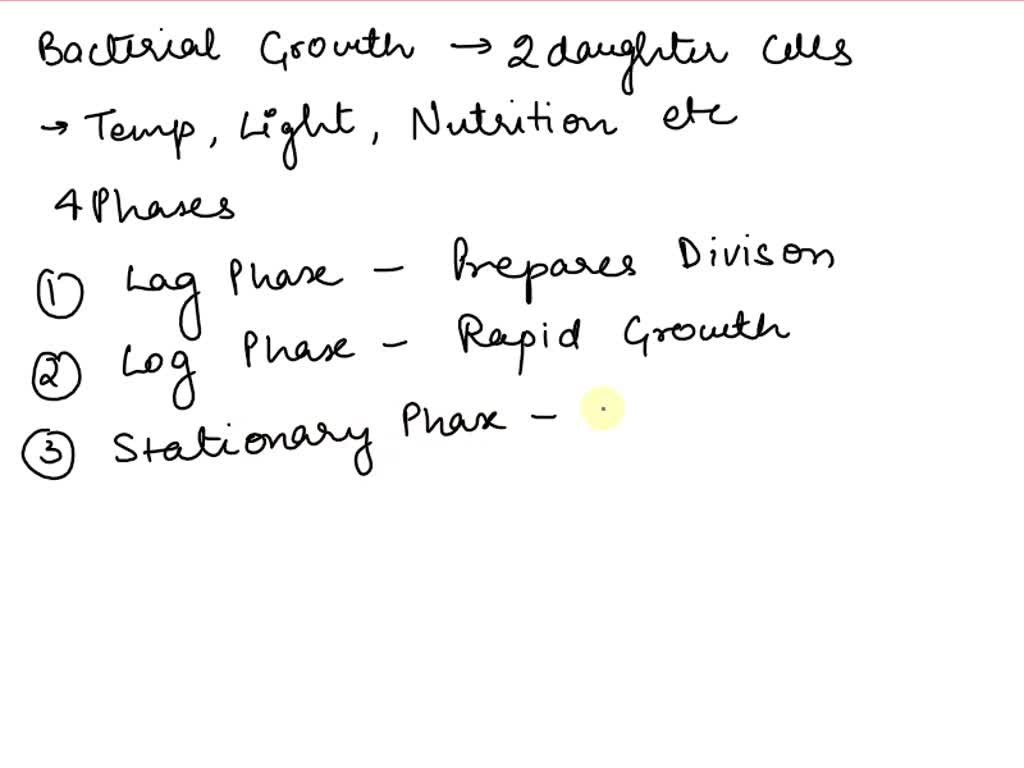 Bacterial Growth → 2 daughter cells
→ Temp, Light, Nutrition etc
4 Phases
① Lag Phase - Prepares Divison
② Log Phase - Rapid Growth
③ Stationary Phase -